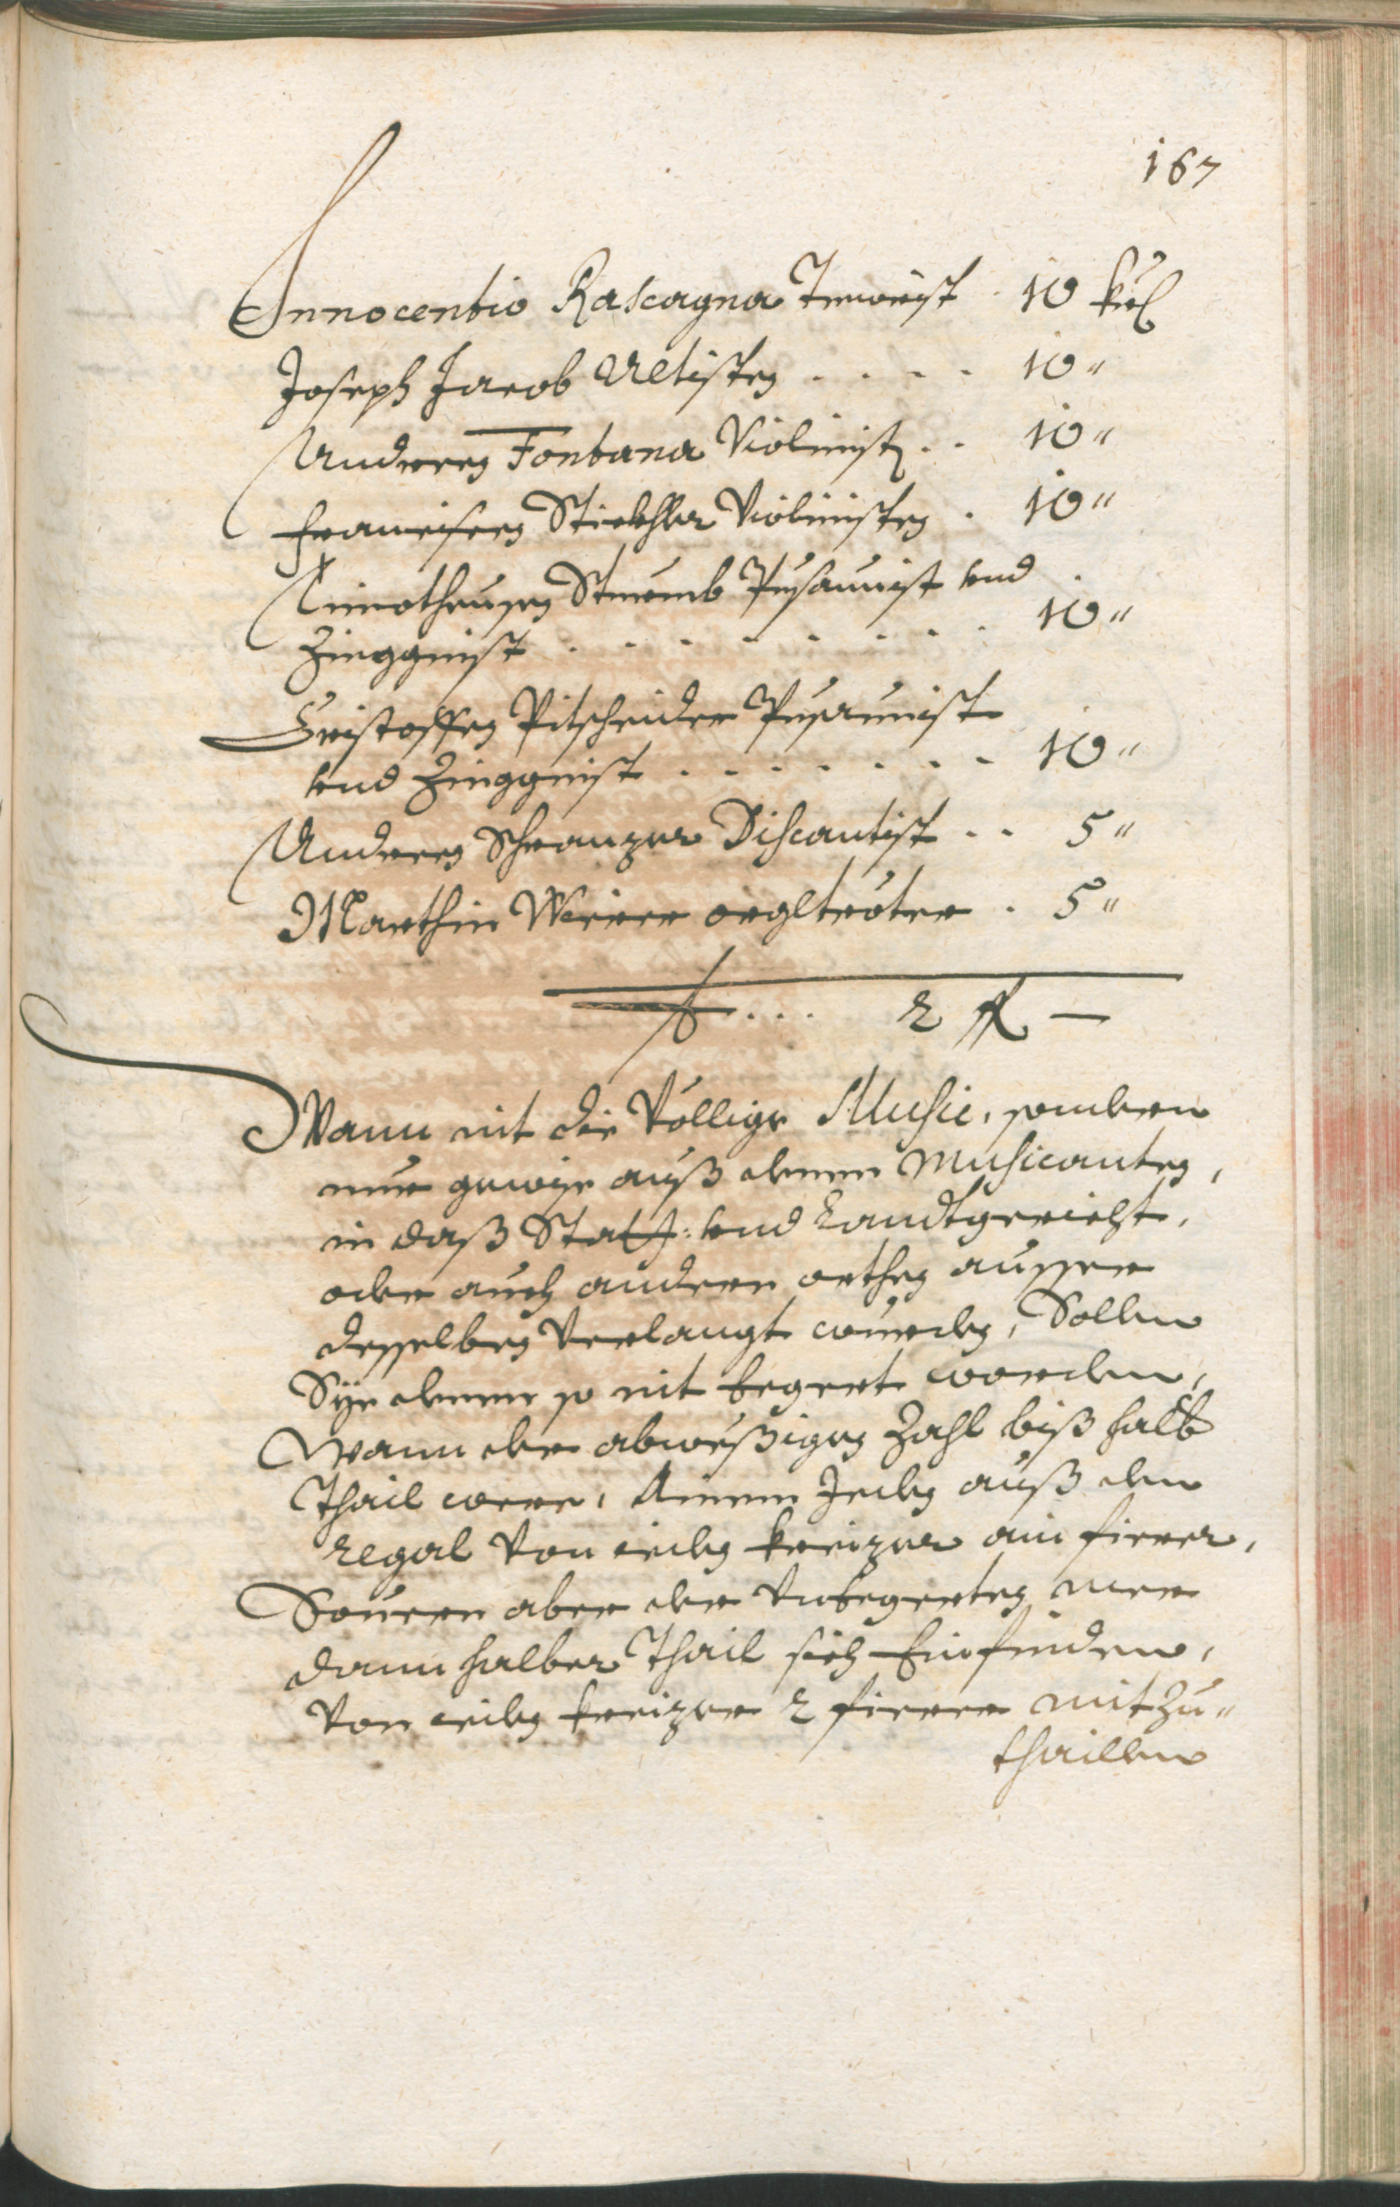 167
Innocentio Rascagna Tenorist . 10 kr
Joseph Jacob Altisten . . . . 10 "
Andreen Fontana Violinist . . 10 "
Francisen Stickhler Violinisten . 10 "
Timotheusen Strumb Pusaunist vnd
Zinggnist . . . . . . . . 10 "
Cristoffen Pitscheider Pusaunist
vnd Zinggnist . . . . . . 10 "
Andreen Schranzer Discantist . . 5 "
Marthin Weirer orgltröter . 5 "
2 fl —
Wann nit die Völlige Music, sondern
nur gewise auß denen Musicanten,
in daß Statt: vnd Landtgericht,
oder auch anderer orthen ausser
desselben Verlangt wurden, Sollen
Sye denen so nit begert worden,
Wann der abweßigen Zahl biß halb
Thail were, Ainem Jeden auß den
regal von ieden kreizer ain fierer,
Sovern aber der Vnbegerten mer
dann halber Thail sich Einfinden,
Von ieden kreizer 2 fierer mitzu"
thaillen